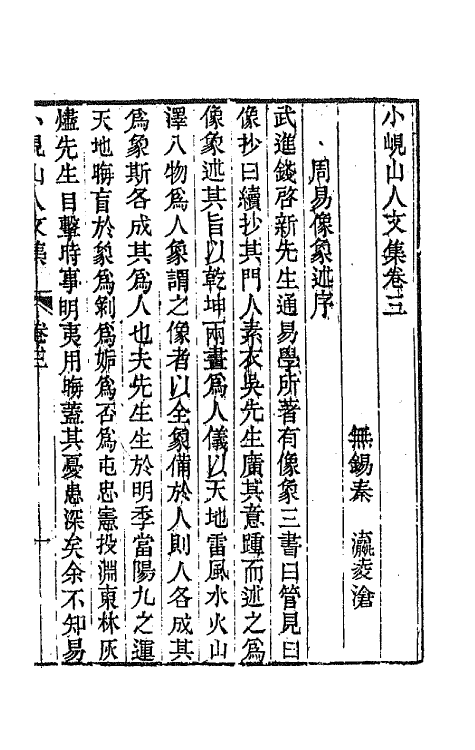 小峴山人文集卷三
無錫秦 瀛凌滄
周易像象述序
武進錢啓新先生通易學所著有像象三書曰管見曰
像抄曰續抄其門人素衣吳先生廣其意踵而述之爲
像象述其旨以乾坤兩畫爲人儀以天地雷風水火山
澤八物爲人象謂之像者以全象備於人則人各成其
爲象斯各成其爲人也夫先生生於明季當陽九之運
天地晦盲於象爲剝爲姤爲否爲屯忠憲投淵東林灰
燼先生目擊時事明夷用晦蓋其憂患深矣余不知易
小峴山人文集 卷三 一